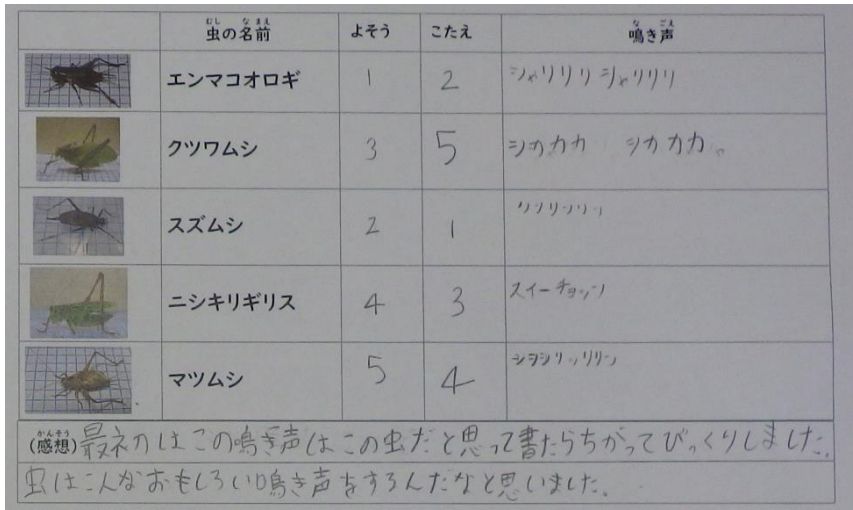 虫の名前 よそう こたえ 鳴き声
エンマコオロギ 1 2 シャリリリ シャリリリ
クツワムシ 3 5 シカカカ シカカカ
スズムシ 2 1
ニシキリギリス 4 3 スイーチョッン
マツムシ 5 4
(感想)最初はこの鳴き声はこの虫だと思って書たらちがってびっくりしました。
虫はこんなおもしろい鳴き声をするんだなと思いました。